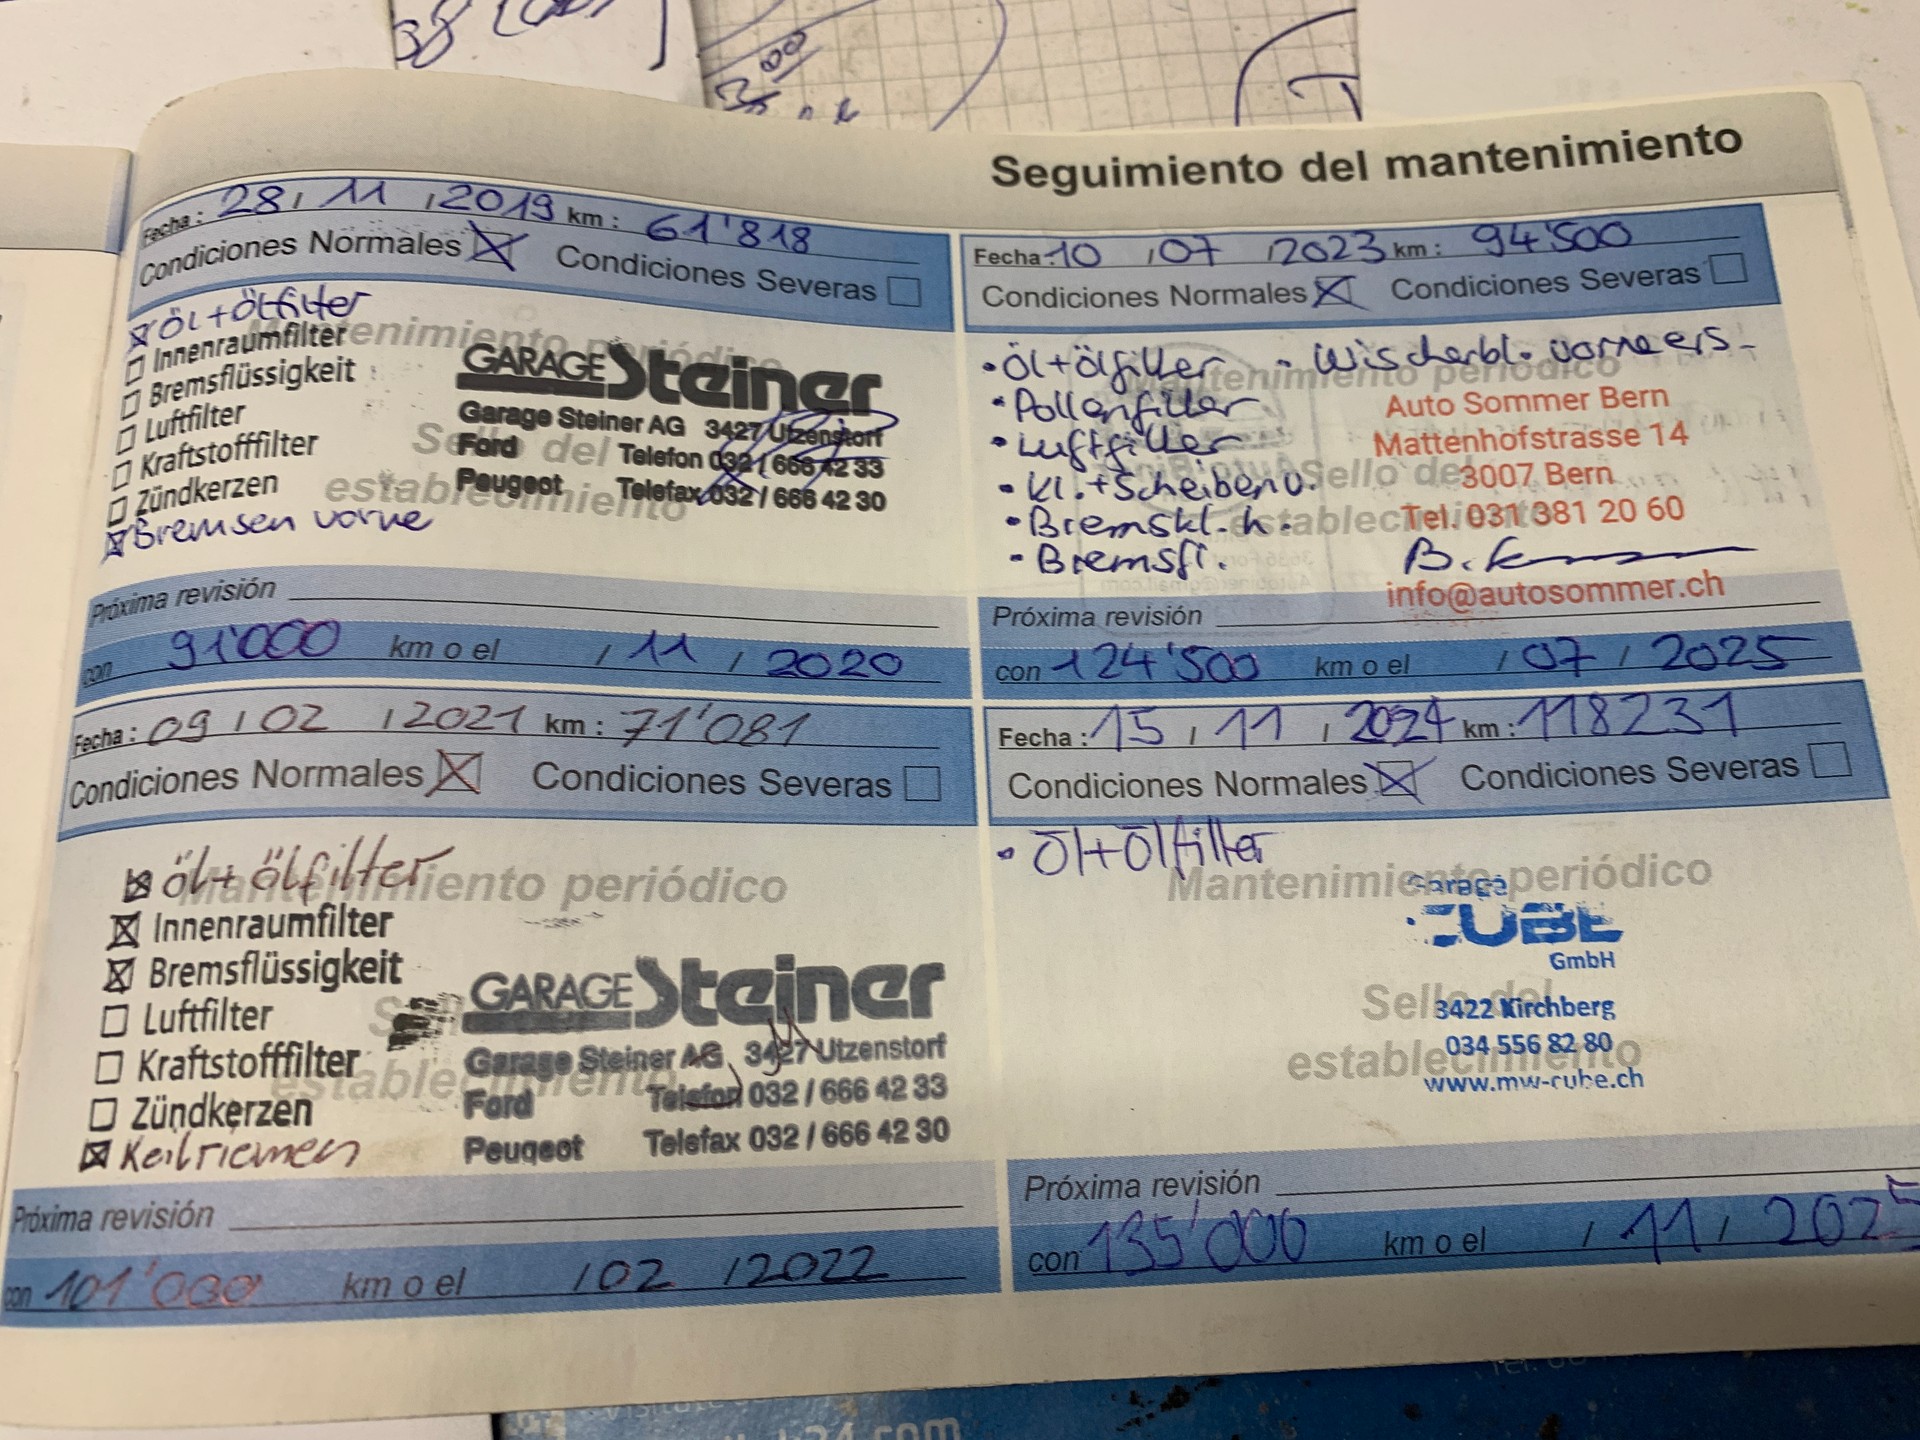 Seguimiento del mantenimiento
Fecha : 28 / 11 / 2019 km : 61'818
Condiciones Normales ☒ Condiciones Severas ☐
☒ Öl + Ölfilter
☐ Innenraumfilter
☐ Bremsflüssigkeit
☐ Luftfilter
☐ Kraftstofffilter
☐ Zündkerzen
☒ Bremsen vorne
Mantenimiento periódico
Sello del
establecimiento
GARAGE Steiner
Garage Steiner AG 3427 Utzenstorf
Ford Telefon 032 / 666 42 33
Peugeot Telefax 032 / 666 42 30
Próxima revisión
con 91'000 km o el / 11 / 2020
Fecha : 09 / 02 / 2021 km : 71'081
Condiciones Normales ☒ Condiciones Severas ☐
☒ Öl + Ölfilter
☒ Innenraumfilter
☒ Bremsflüssigkeit
☐ Luftfilter
☐ Kraftstofffilter
☐ Zündkerzen
☒ Keilriemen
Mantenimiento periódico
establecimiento
GARAGE Steiner
Garage Steiner AG 3427 Utzenstorf
Ford Telefon 032 / 666 42 33
Peugeot Telefax 032 / 666 42 30
Próxima revisión
con 101'000 km o el / 02 / 2022
Fecha : 10 / 07 / 2023 km : 94'500
Condiciones Normales ☒ Condiciones Severas ☐
• Öl + Ölfilter - Wischerbl. vorne ers.
• Pollenfilter
• Luftfilter
• Kl. + Scheiben v.
• Bremskl. h.
• Bremsfl.
Mantenimiento periódico
Sello del
establecimiento
Auto Sommer Bern
Mattenhofstrasse 14
3007 Bern
Tel. 031 381 20 60
info@autosommer.ch
Próxima revisión
con 124'500 km o el / 07 / 2025
Fecha : 15 / 11 / 2024 km : 118231
Condiciones Normales ☒ Condiciones Severas ☐
• Öl + Ölfilter
Mantenimiento periódico
Sello del
establecimiento
Garage
CUBE
GmbH
3422 Kirchberg
034 556 82 80
www.mw-cube.ch
Próxima revisión
con 135'000 km o el / 11 / 2025